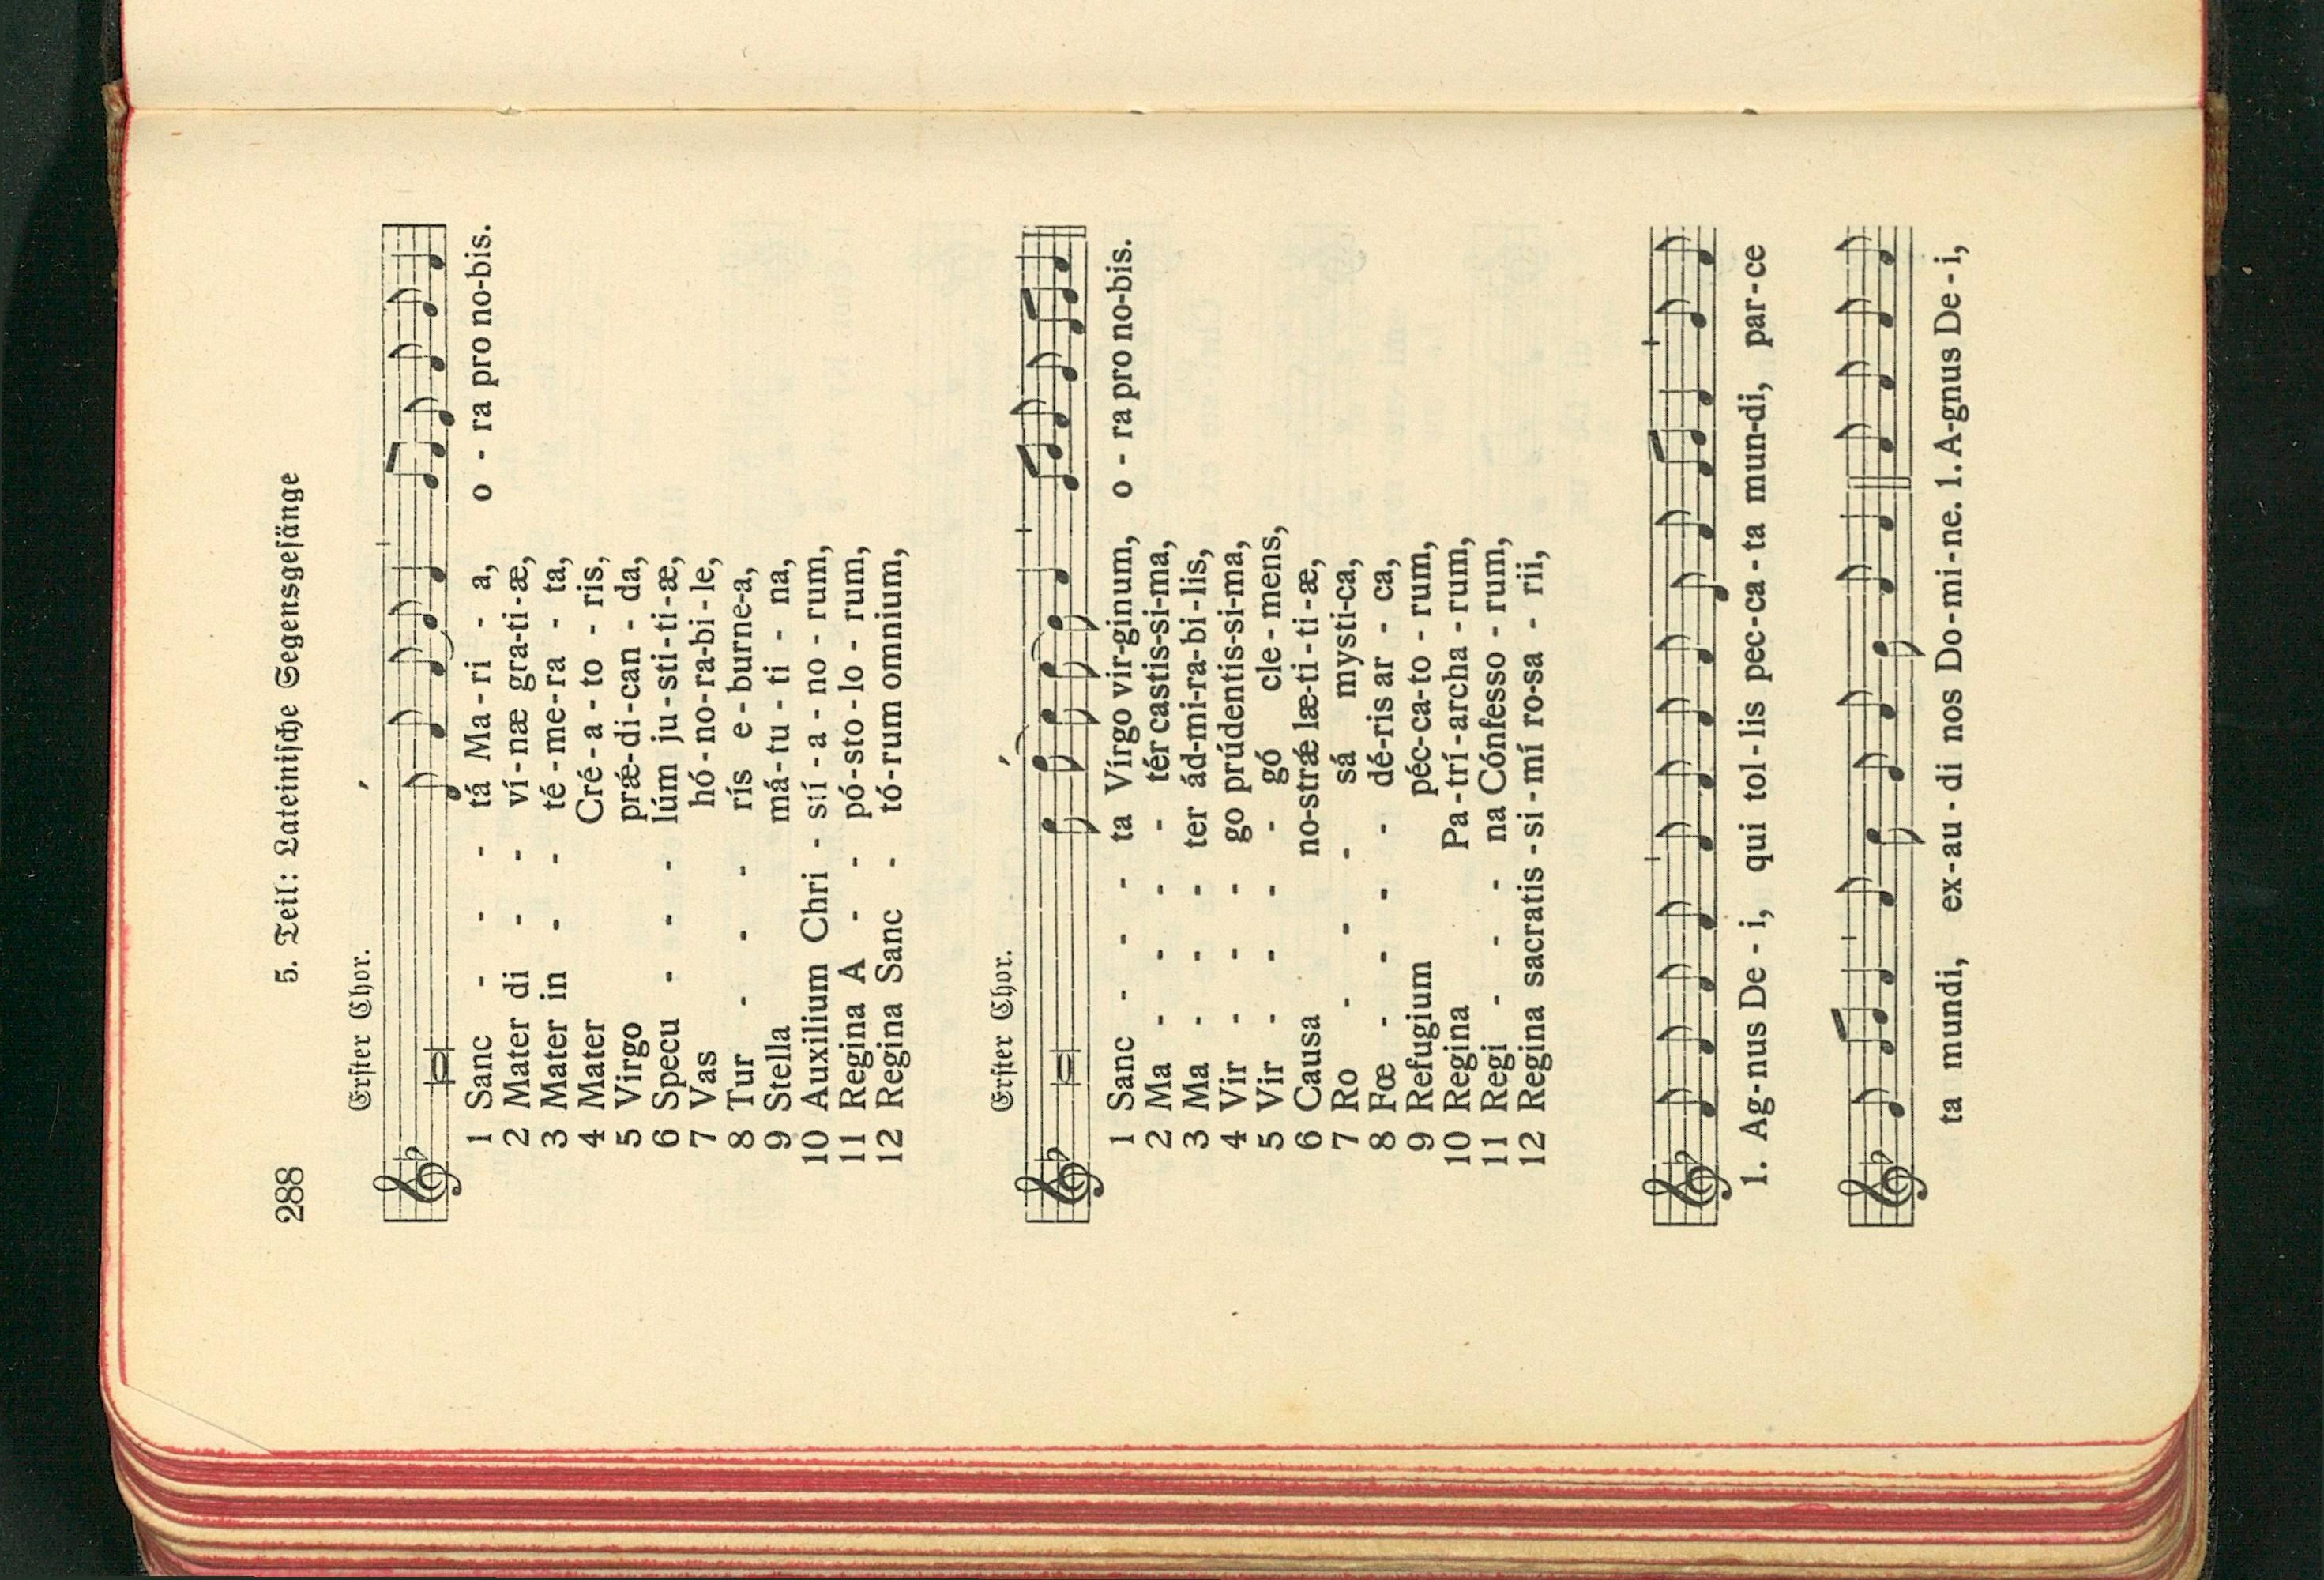 288 5. Teil: Lateinische Segensgesänge
Erster Chor.
1 Sanc - - - tá Ma - ri - a, o - ra pro no-bis.
2 Mater di - - ví - næ gra-ti-æ,
3 Mater in - - té - me - ra - ta,
4 Mater Cré - a - to - ris,
5 Virgo præ - di - can - da,
6 Specu - - - lúm ju - sti - ti - æ,
7 Vas hó - no - ra - bi - le,
8 Tur - - - rís e - burne-a,
9 Stella má - tu - ti - na,
10 Auxilium Chri - stí - a - no - rum,
11 Regina A - - pó - sto - lo - rum,
12 Regina Sanc - tó - rum omnium,
Erster Chor.
1 Sanc - - - ta Vírgo vir-ginum, o - ra pro no-bis.
2 Ma - - - - tér castis-si-ma,
3 Ma - - - ter ád-mi-ra-bi-lis,
4 Vir - - - go prúdentis-si-ma,
5 Vir - - - - gó cle - mens,
6 Causa no-strǽ læ-ti-ti-æ,
7 Ro - - - sá mysti-ca,
8 Fœ - - - - dé-ris ar - ca,
9 Refugium péc-ca-to - rum,
10 Regina Pa - trí - archa - rum,
11 Regi - - - na Cónfesso - rum,
12 Regina sacratis - si - mí ro-sa - rii,
1. Ag-nus De - i, qui tol - lis pec-ca - ta mun-di, par-ce
ta mundi, ex-au - di nos Do-mi-ne. 1. A-gnus De - i,